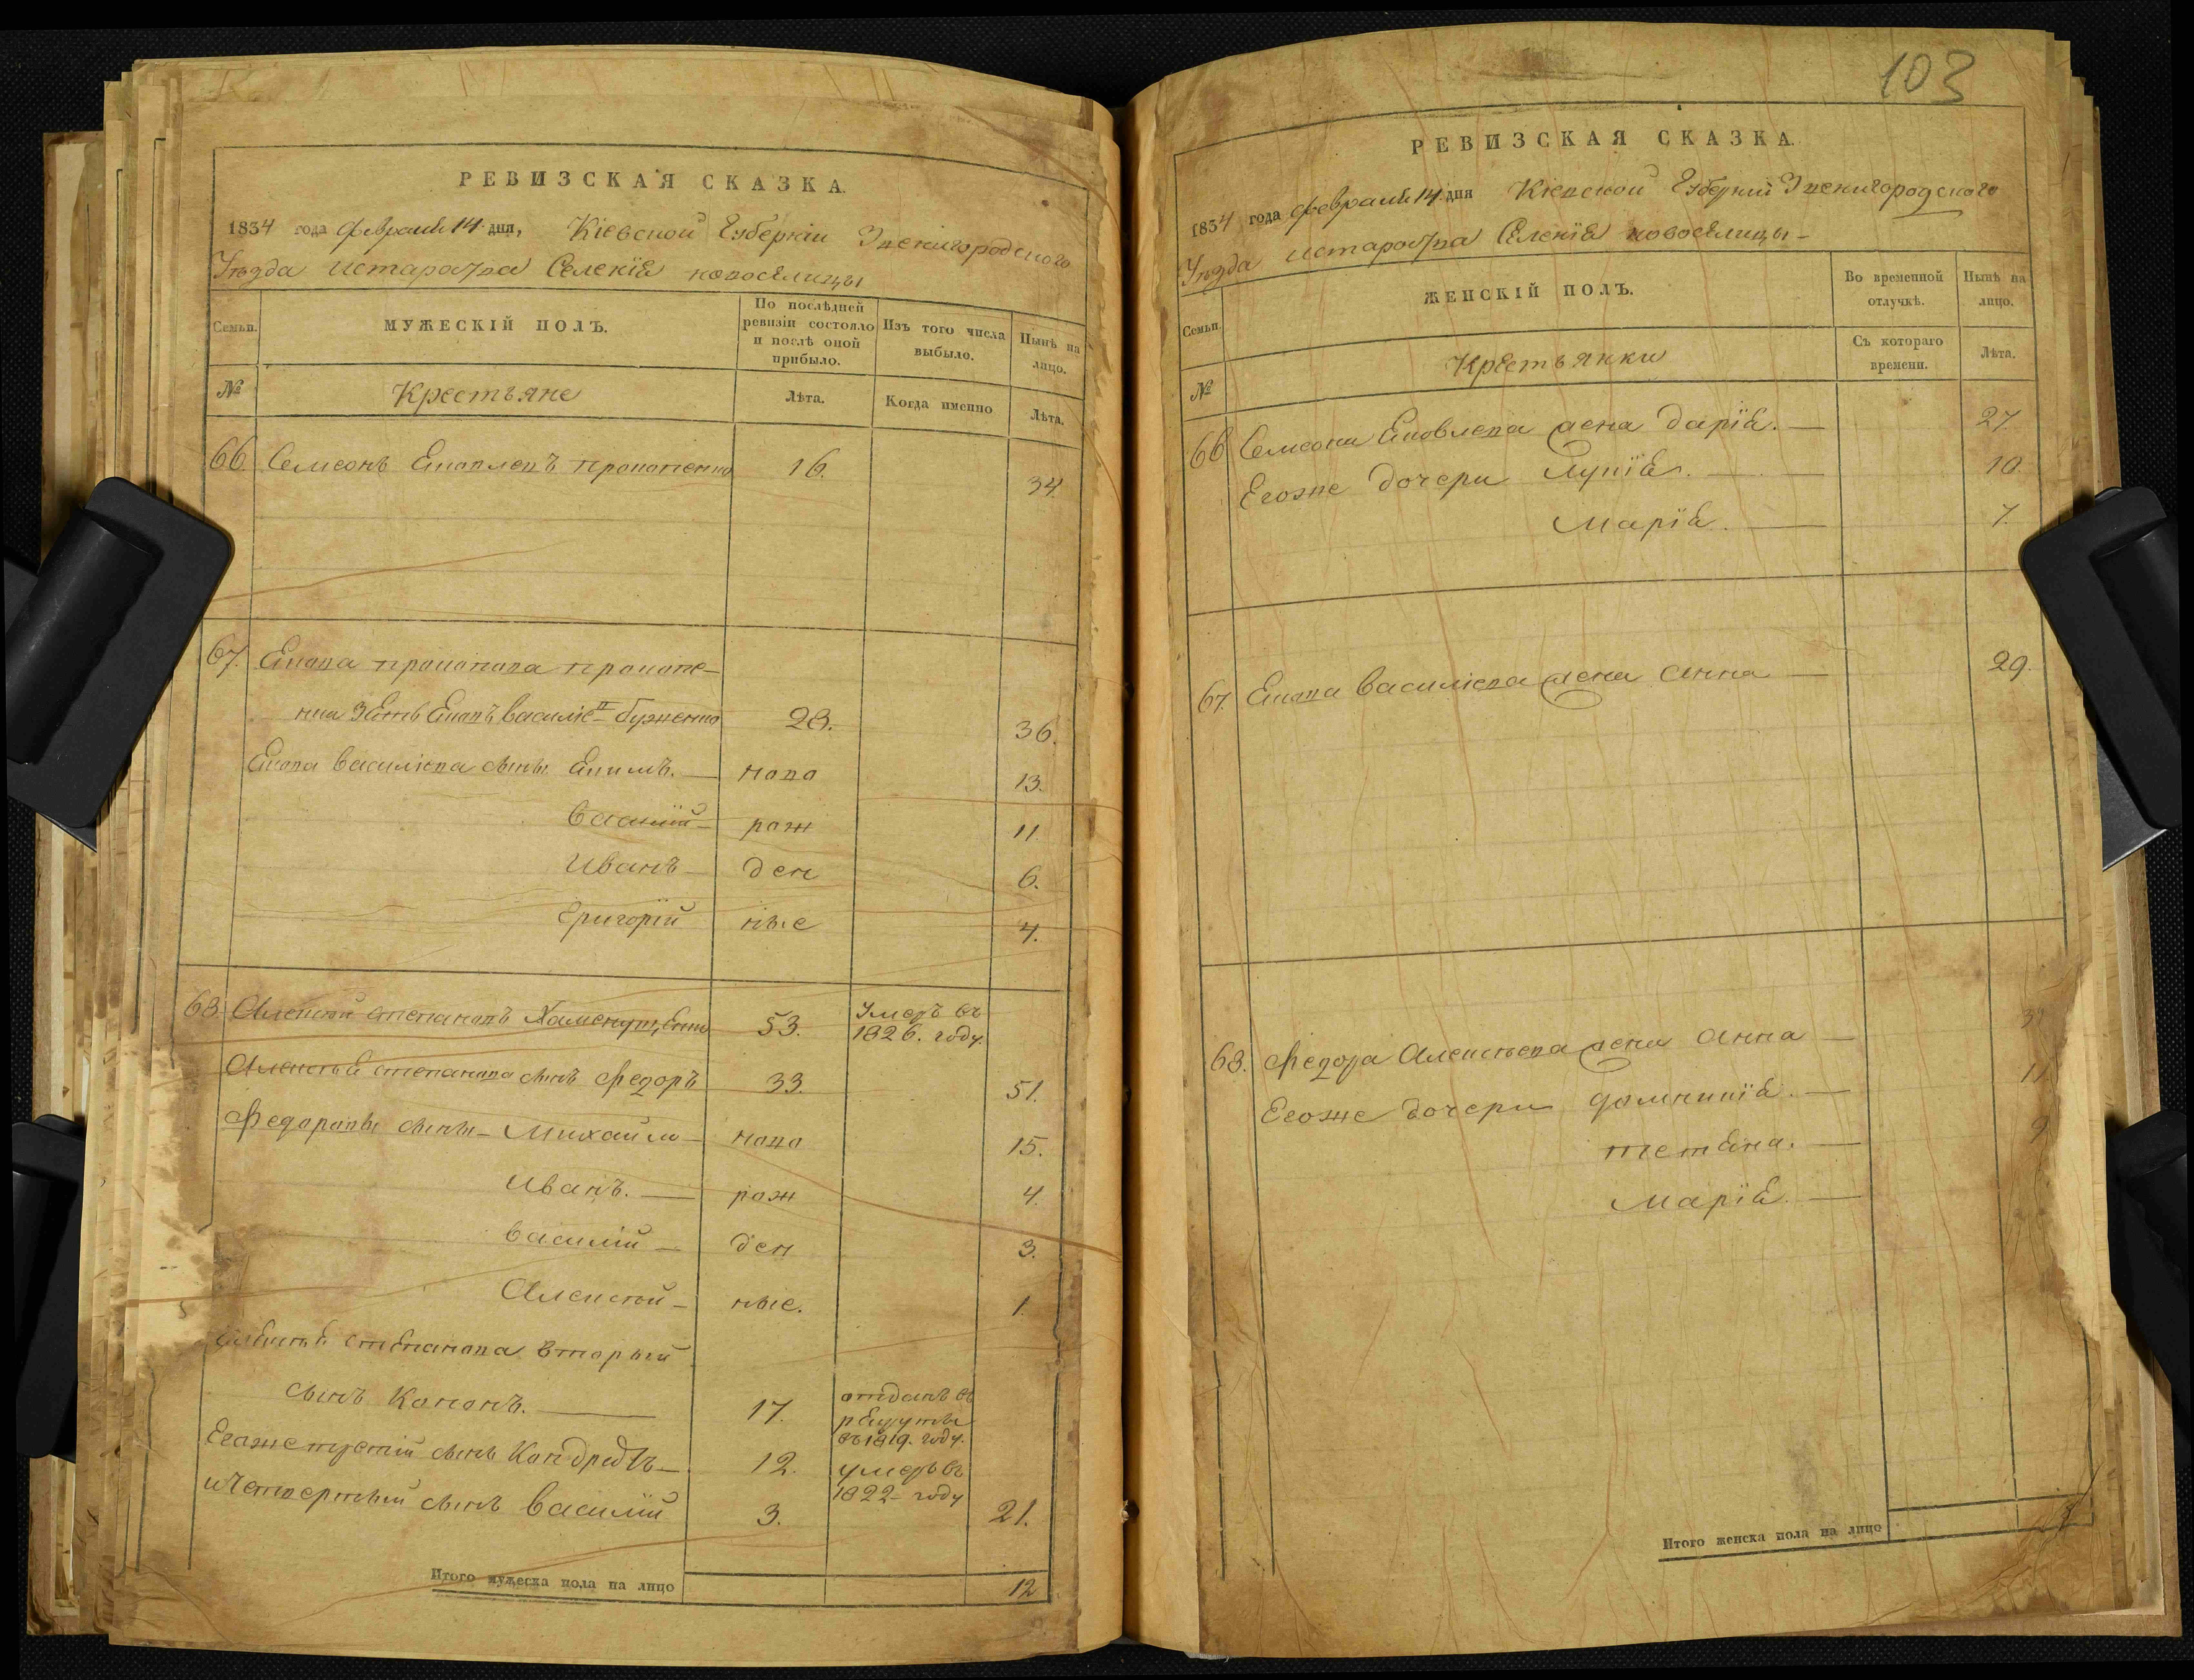 РЕВИЗСКАЯ СКАЗКА.
1834 года февраля 14 дня, Кіевской Губерніи Звенигородского
Уѣзда Истароства Селенія новоселицы
Семьи.
МУЖЕСКІЙ ПОЛЪ.
По послѣдней ревизіи состояло и послѣ оной прибыло.
Изъ того числа выбыло.
Нынѣ на лицо.
№
Крестьяне
Лѣта.
Когда именно
Лѣта.
66 Семеонъ Яковлевъ прокопенко 16. 34
67. Якова прокопова прокопе-
нка зять Яковъ василіе- буженко 28. 36.
Якова василіева сыны Якимъ. ново 13.
василій рож 11.
Иванъ ден 6.
Григорій ные 4.
68. Алексей степановъ 53. Умеръ въ
1826. году.
Алексея степанова сынъ Федоръ 33. 51.
Федоровы сыны Михайло ново 15.
Иванъ. рож 4.
василій ден 3.
Алексей ные. 1.
Алексея степанова вторый
сынъ Кононъ. 17. отданъ въ
рекруты
въ 1819. году.
Егоже третій сынъ Кондратъ 12. умеръ въ
1822 году
и четвертый сынъ василій 3. 21.
Итого мужеска пола на лицо 12
103
РЕВИЗСКАЯ СКАЗКА.
1834 года февраля 14 дня Кіевской Губерніи Звенигородского
Уѣзда Истароства Селенія новоселицы
Семьи.
ЖЕНСКІЙ ПОЛЪ.
Во временной отлучкѣ.
Нынѣ на лицо.
№
Крестьянки
Съ котораго времени.
Лѣта.
66 Семеона Яковлева жена дарія. 27
Егоже дочери Лукія. 10.
Марія. 7.
67. Якова василіева жена Анна 29.
68. Федора Алексеева жена Анна
Егоже дочери домникія. 11
тетяна. 9
Марія.
Итого женска пола на лицо